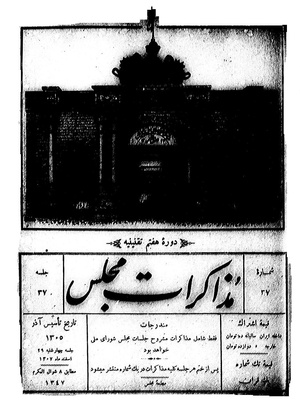 دورهٔ هفتم تقنینیه
شماره
۳۷
مذاکرات مجلس
جلسه
۳۷
قیمة اشتراك
داخله ایران سالیانه ده تومان
خارجه » دوازده تومان
قیمة تك شماره
یك قران
مندرجات
فقط شامل مذاکرات مشروح جلسات مجلس شورای ملی
خواهد بود
پس از ختم هر جلسه کلیه مذاکرات در یك شماره منتشر میشود
مطبعهٔ مجلس
تاریخ تأسیس آذر
۱۳۰۵
جلسه چهارشنبه ۲۹
اسفند ماه ۱۳۰۷
مطابق ۸ شوال المکرم
۱۳۴۷